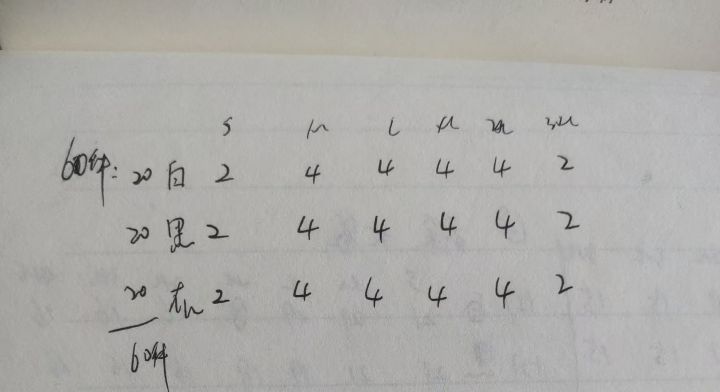 S M L XL 2XL 3XL
60件: 20 白 2 4 4 4 4 2
20 黑 2 4 4 4 4 2
20 杏 2 4 4 4 4 2
60件